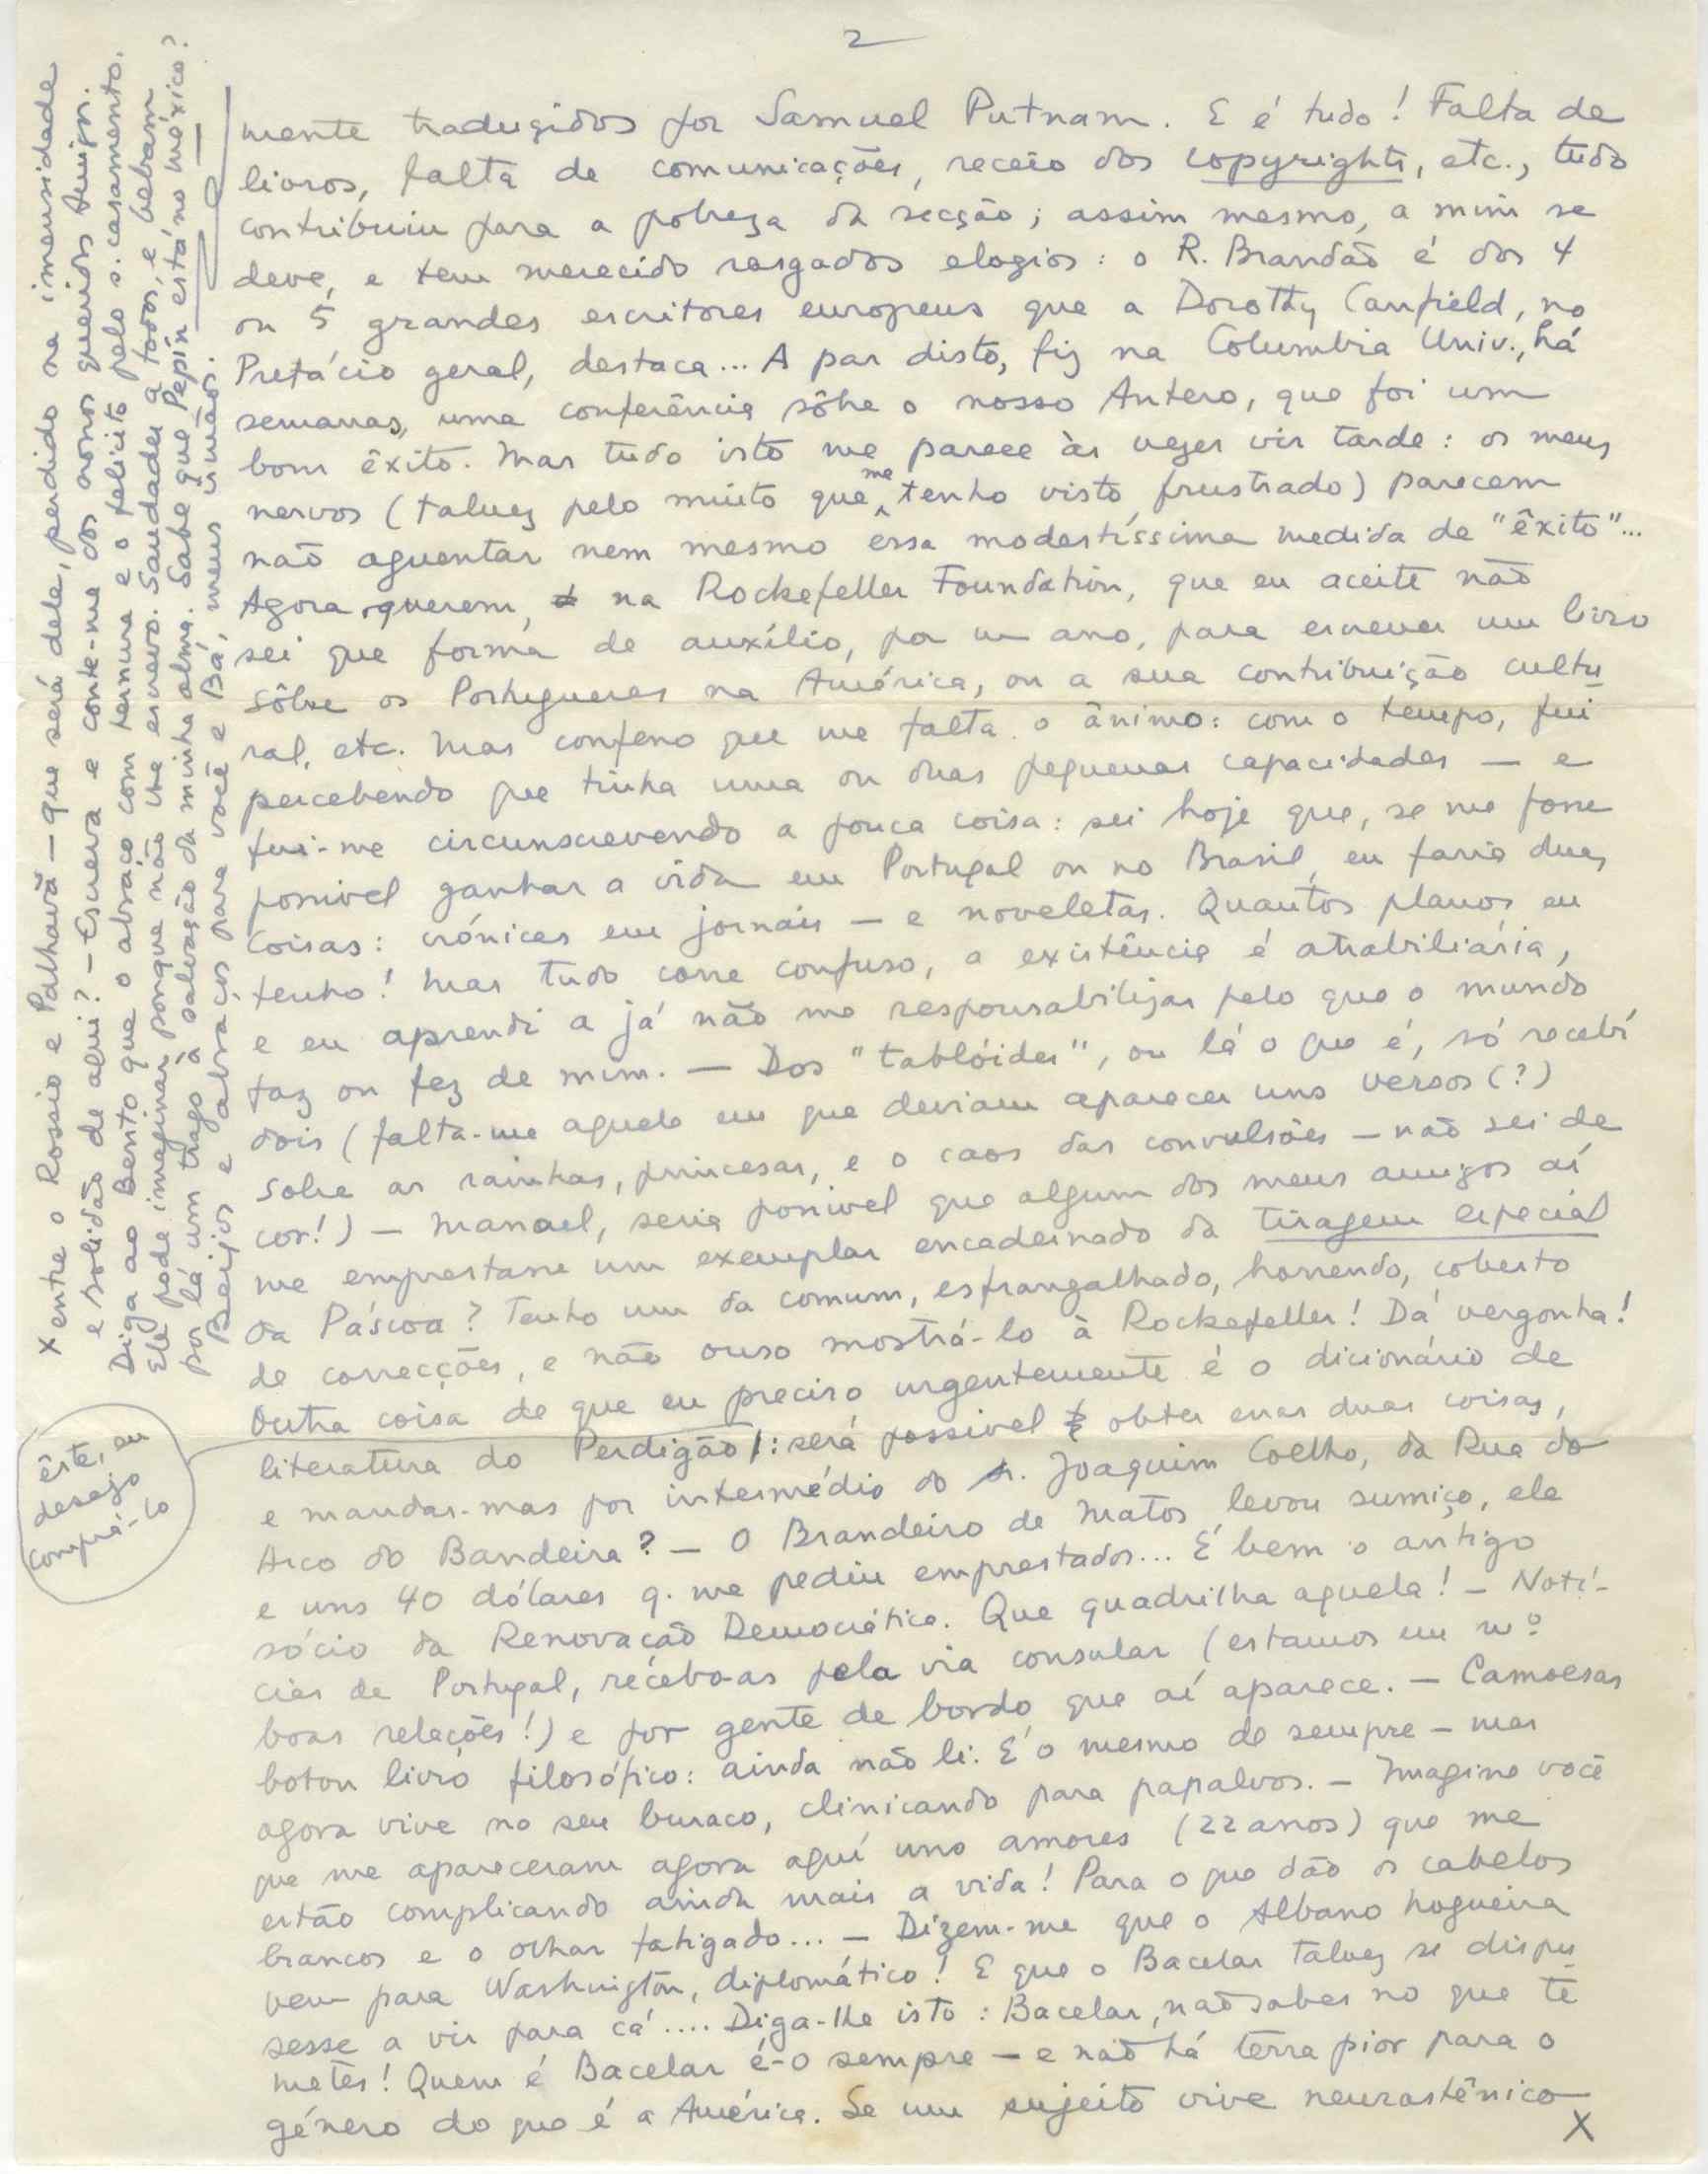 2
mente traduzidos por Samuel Putnam. E é tudo! Falta de
livros, falta de comunicações, receio dos copyrights, etc., tudo
contribuiu para a pobreza da secção; assim mesmo, a mim se
deve, e tem merecido rasgados elogios: o R. Brandão é dos 4
ou 5 grandes escritores europeus que a Dorothy Canfield, no
Prefácio geral, destaca... A par disto, fiz na Columbia Univ., há
semanas, uma conferência sôbre o nosso Antero, que foi um
bom êxito. Mas tudo isto me parece às vezes vir tarde: os meus
nervos (talvez pelo muito que me tenho visto frustrado) parecem
não aguentar nem mesmo essa modestíssima medida de "êxito"...
Agora querem, na Rockefeller Foundation, que eu aceite não
sei que forma de auxílio, por um ano, para escrever um livro
sôbre os Portugueses na América, ou a sua contribuição cultu-
ral, etc. Mas confesso que me falta o ânimo: com o tempo, fui
percebendo que tinha uma ou duas pequenas capacidades — e
fui-me circunscrevendo a pouca coisa: sei hoje que, se me fosse
possivel ganhar a vida em Portugal ou no Brasil, eu faria duas
coisas: crónicas em jornais — e noveletas. Quantos planos eu
tenho! Mas tudo corre confuso, a existência é atrabiliária,
e eu aprendi a já não me responsabilizar pelo que o mundo
faz ou fez de mim. — Dos "tablóides", ou lá o que é, só recebí
dois (falta-me aquele em que deviam aparecer uns versos (?)
sobre as rainhas, princesas, e o caos das convulsões — não sei de
cor!) — Manuel, seria possivel que algum dos meus amigos aí
me emprestasse um exemplar encadernado da tiragem especial
da Páscoa? Tenho um da comum, esfrangalhado, horrendo, coberto
de correcções, e não ouso mostrá-lo à Rockefeller! Dá vergonha!
Outra coisa de que eu preciso urgentemente é o dicionário de
literatura do Perdigão: será possivel obter essas duas coisas,
e mandar-mas por intermédio do sr. Joaquim Coelho, da Rua do
Arco do Bandeira? — O Brandeiro de Matos levou sumiço, ele
e uns 40 dólares q. me pediu emprestados... É bem o antigo
sócio da Renovação Democrática. Que quadrilha aquela! — Notí-
cias de Portugal, recebo-as pela via consular (estamos em mº
boas relações!) e por gente de bordo que aí aparece. — Camoesas
botou livro filosófico: ainda não li. É o mesmo de sempre — mas
agora vive no seu buraco, clinicando para papalvos. — Imagine você
que me apareceram agora aquí uns amores (22 anos) que me
estão complicando ainda mais a vida! Para o que dão os cabelos
brancos e o olhar fatigado... — Dizem-me que o Albano Nogueira
vem para Washington, diplomático! E que o Bacelar talvez se dispu-
sesse a vir para cá.... Diga-lhe isto: Bacelar, não sabes no que te
metes! Quem é Bacelar é-o sempre — e não há terra pior para o
género do que é a América. Se um sujeito vive neurasténico
X
êste, eu
desejo
comprá-lo
X entre o Rossio e Palhavã — que será dele, perdido na imensidade
e solidão de aqui? — Escreva e conte-me dos nossos queridos amigos.
Diga ao Bento que o abraço com ternura e o felicito pelo s. casamento.
Ele pode imaginar porque não lhe escrevo. Saudades a todos, e bebam
por lá um trago à salvação da minha alma. Sabe que Pepín está no México?
Beijos e abraços para você e Bá, meus irmãos.